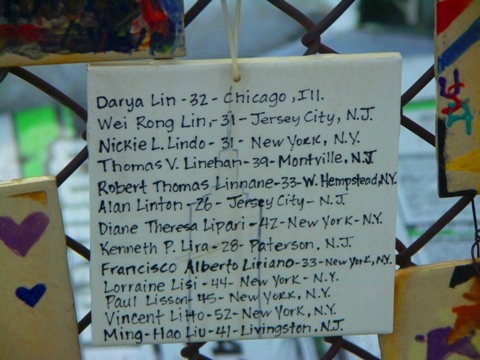 Darya Lin - 32 - Chicago, Ill.
Wei Rong Lin, - 31 - Jersey City, N.J.
Nickie L. Lindo - 31 - New York, N.Y.
Thomas V. Linehan - 39 - Montville, N.J
Robert Thomas Linnane - 33 - W. Hempstead, N.Y.
Alan Linton - 26 - Jersey City - N.J.
Diane Theresa Lipari - 42 - New York - N.Y.
Kenneth P. Lira - 28 - Paterson, N.J.
Francisco Alberto Liriano - 33 - New York, N.Y.
Lorraine Lisi - 44 - New York - N.Y.
Paul Lisson - 45 - New York, N.Y.
Vincent Litto - 52 - New York, N.Y.
Ming-Hao Liu - 41 - Livingston, N.J.